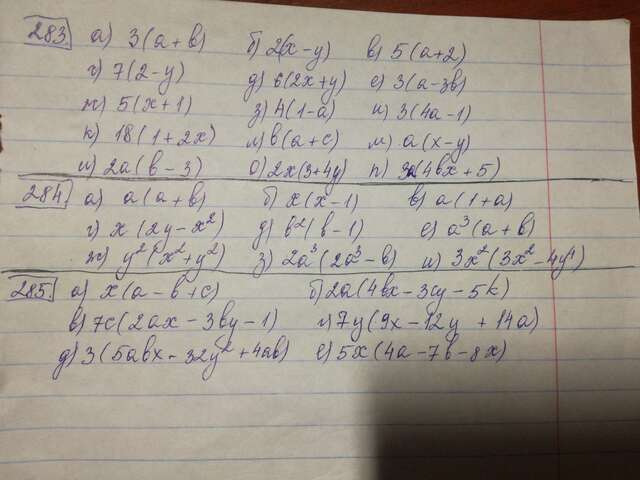 283. а) 3(a+b) б) 2(x-y) в) 5(a+2)
г) 7(2-y) д) 6(2x+y) е) 3(a-3b)
ж) 5(x+1) з) 4(1-a) и) 3(4a-1)
к) 18(1+2x) л) b(a+c) м) a(x-y)
н) 2a(b-3) о) 2x(3+4y) п) 3a(4bx+5)
284. а) a(a+b) б) x(x-1) в) a(1+a)
г) x(2y-x²) д) b²(b-1) е) a³(a+b)
ж) y²(x²+y²) з) 2a³(2a³-b) и) 3x²(3x²-4y⁴)
285. а) x(a-b+c) б) 2a(4bx-3cy-5k)
в) 7c(2ax-3by-1) г) 7y(9x-12y+14a)
д) 3(5abx-32y²+4ab) е) 5x(4a-7b-8x)